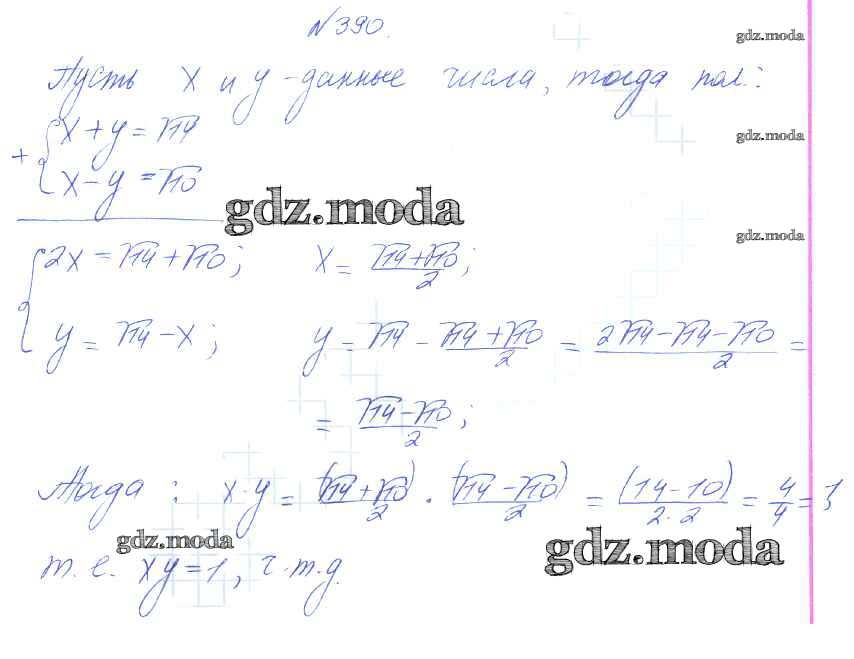 №390.
gdz.moda
Пусть x и y - данные числа, тогда пол.:
+ { x + y = √14
gdz.moda
x - y = √10
gdz.moda
gdz.moda
{ 2x = √14 + √10; x = (√14 + √10)/2;
y = √14 - x; y = √14 - (√14 + √10)/2 = (2√14 - √14 - √10)/2 =
= (√14 - √10)/2;
Тогда: x·y = (√14 + √10)/2 · (√14 - √10)/2 = (14 - 10)/(2·2) = 4/4 = 1
gdz.moda
gdz.moda
т.е. xy = 1, ч.т.д.